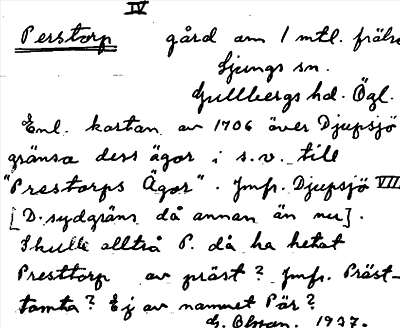 IV
Perstorp gård om 1 mtl. frälse
Ljungs sn.
Gullbergs hd. Ögl.
Enl. kartan av 1706 över Djupsjö
gränsa dess ägor i s.v. till
"Prestorps Ägor". Jmfr. Djupsjö VIII
[D. sydgräns då annan än nu].
Skulle alltså P. då ha hetat
Presttorp av präst? Jmfr. Präst-
tomta? Ej av namnet Pär?
G. Olson. 1937.